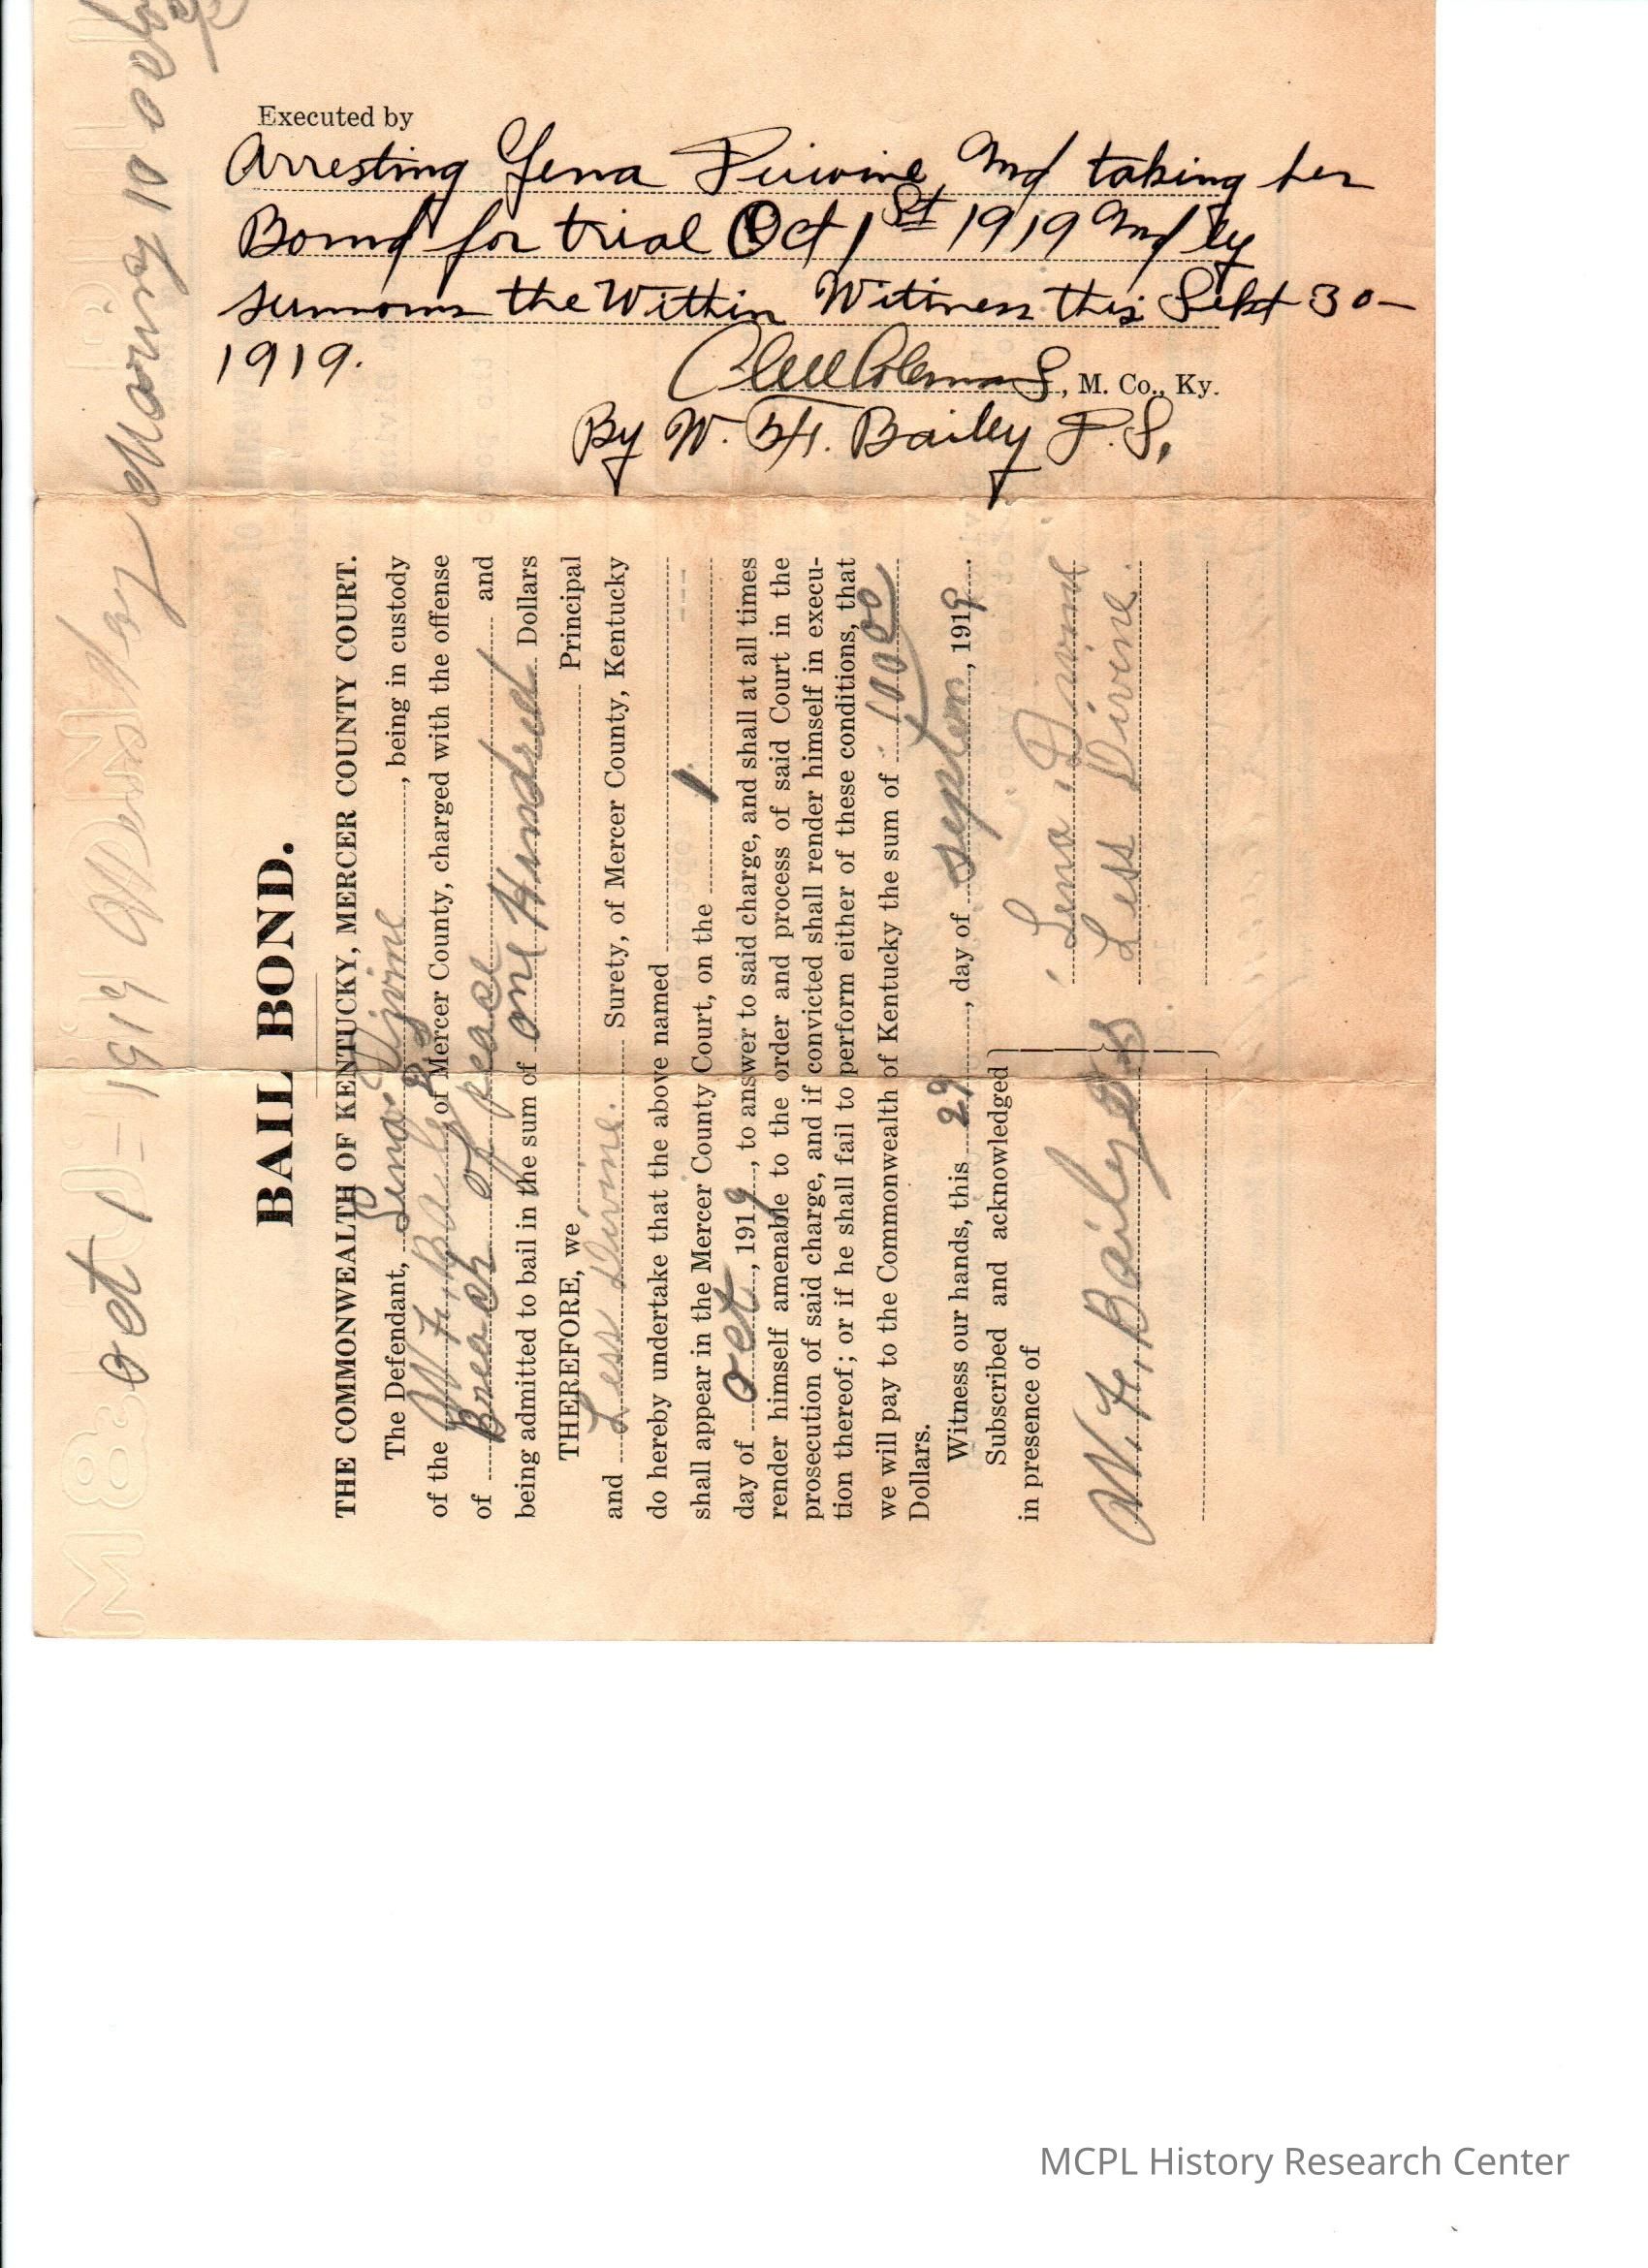 Executed by
Arresting Lena Diwine and taking her
Bond for trial Oct 1st 1919 and by
summons the Within Witiness this Sept 30-
1919.
Clell Coleman S, M. Co., Ky.
By W. H. Bailey D. S,
oct 1 - 1919 Wensdey Moring 10 oclo
BAIL BOND.
THE COMMONWEALTH OF KENTUCKY, MERCER COUNTY COURT.
The Defendant, Lena Divine, being in custody
of the W. H. Baily DS of Mercer County, charged with the offense
of Breach of peace and
being admitted to bail in the sum of one Hundred Dollars
THEREFORE, we Principal
and Less Divine. Surety, of Mercer County, Kentucky
do hereby undertake that the above named
shall appear in the Mercer County Court, on the 1
day of oct, 1919, to answer to said charge, and shall at all times
render himself amenable to the order and process of said Court in the
prosecution of said charge, and if convicted shall render himself in execu-
tion thereof; or if he shall fail to perform either of these conditions, that
we will pay to the Commonwealth of Kentucky the sum of 100 00
Dollars.
Witness our hands, this 29, day of septem, 1919.
Subscribed and acknowledged
in presence of
Lena Divine
W. H. Bailey DS Less Divine.
MCPL History Research Center